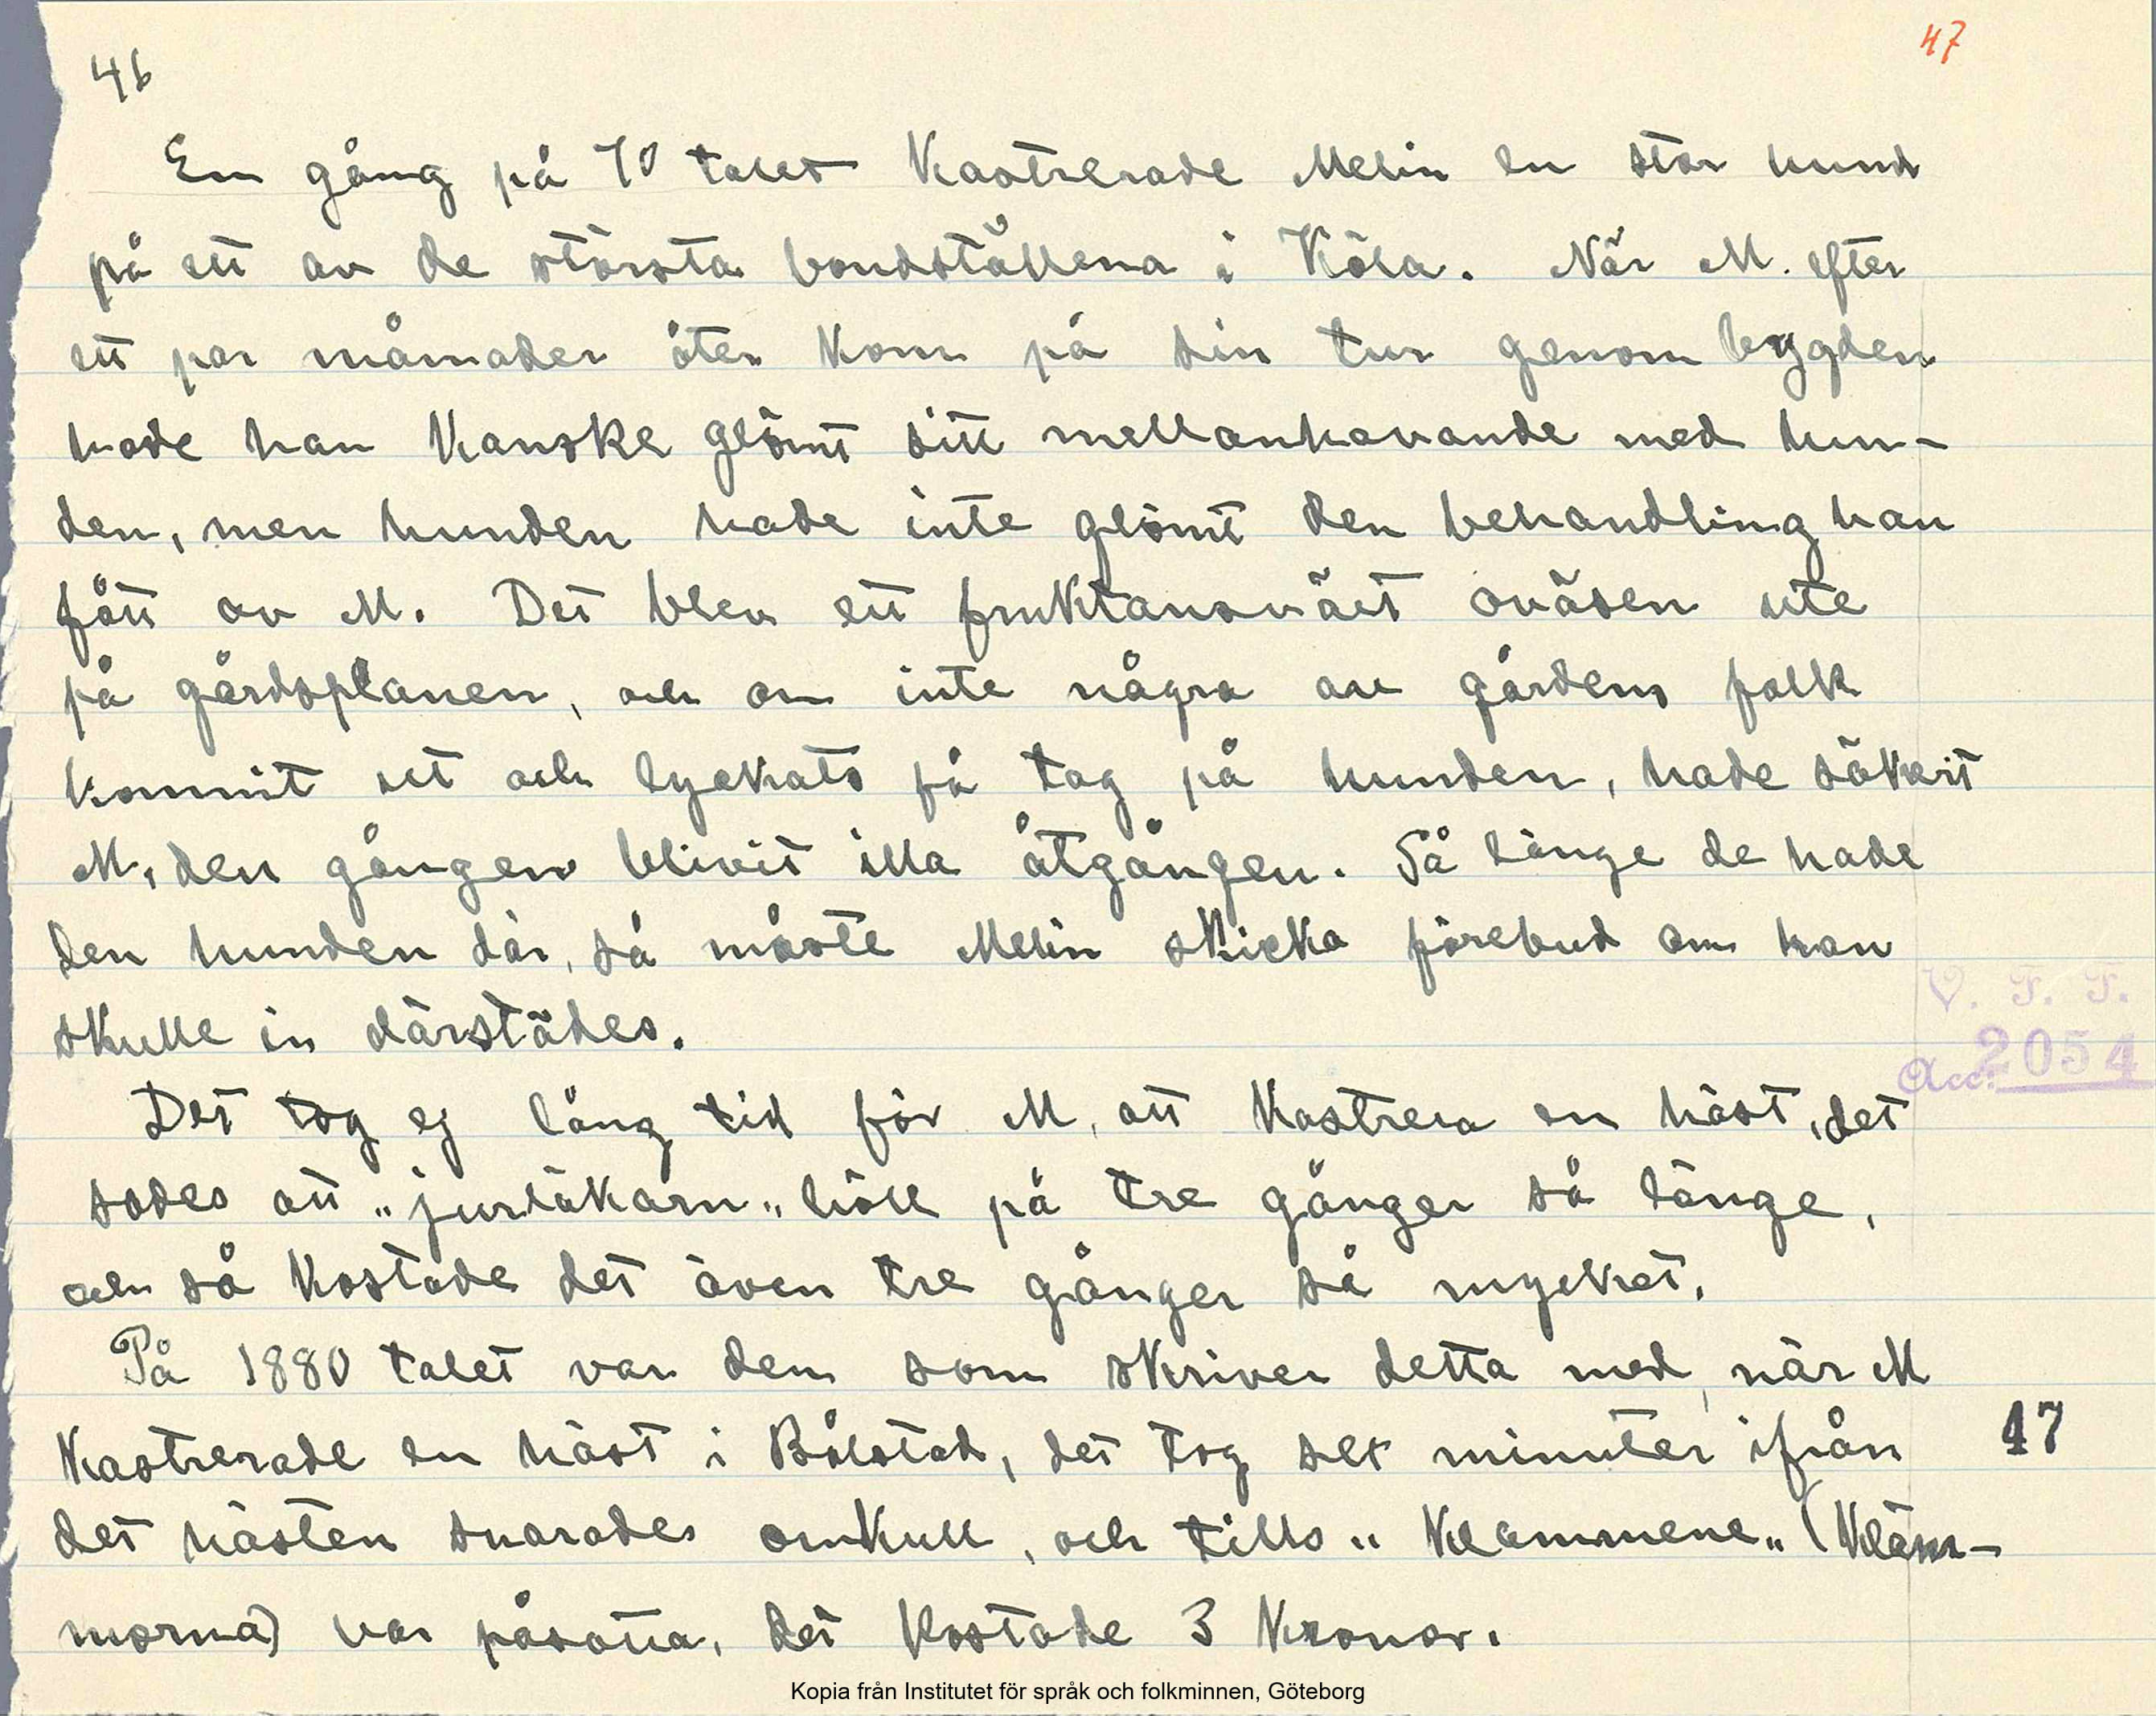 46
47
En gång på 70 talet Kastrerade Melin en stor hund
på ett av de största bondställena i Köla. När M. efter
ett par månader åter kom på sin tur genom bygden
hade han kanske glömt sitt mellanhavande med hun-
den, men hunden hade inte glömt den behandling han
fått av M. Det blev ett fruktansvärt oväsen ute
på gårdsplanen, och om inte några av gårdens folk
kommit ut och lyckats få tag på hunden, hade säkert
M. den gången blivit illa åtgången. Så länge de hade
den hunden där, så måste Melin skicka förebud om han
skulle in därstädes.
V. F. F.
Acc: 2054
Det tog ej lång tid för M. att Kastrera en häst, det
sades att „jurläkarn„ höll på tre gånger så länge,
och så kostade det även tre gånger så mycket.
På 1880 talet var den som skriver detta med, när M
Kastrerade en häst i Bålstad, det tog sex minuter ifrån
47
det hästen snarades omkull, och tills „Klammene„ (Kläm-
morna) var påsatta, det kostade 3 Kronor.
Kopia från Institutet för språk och folkminnen, Göteborg